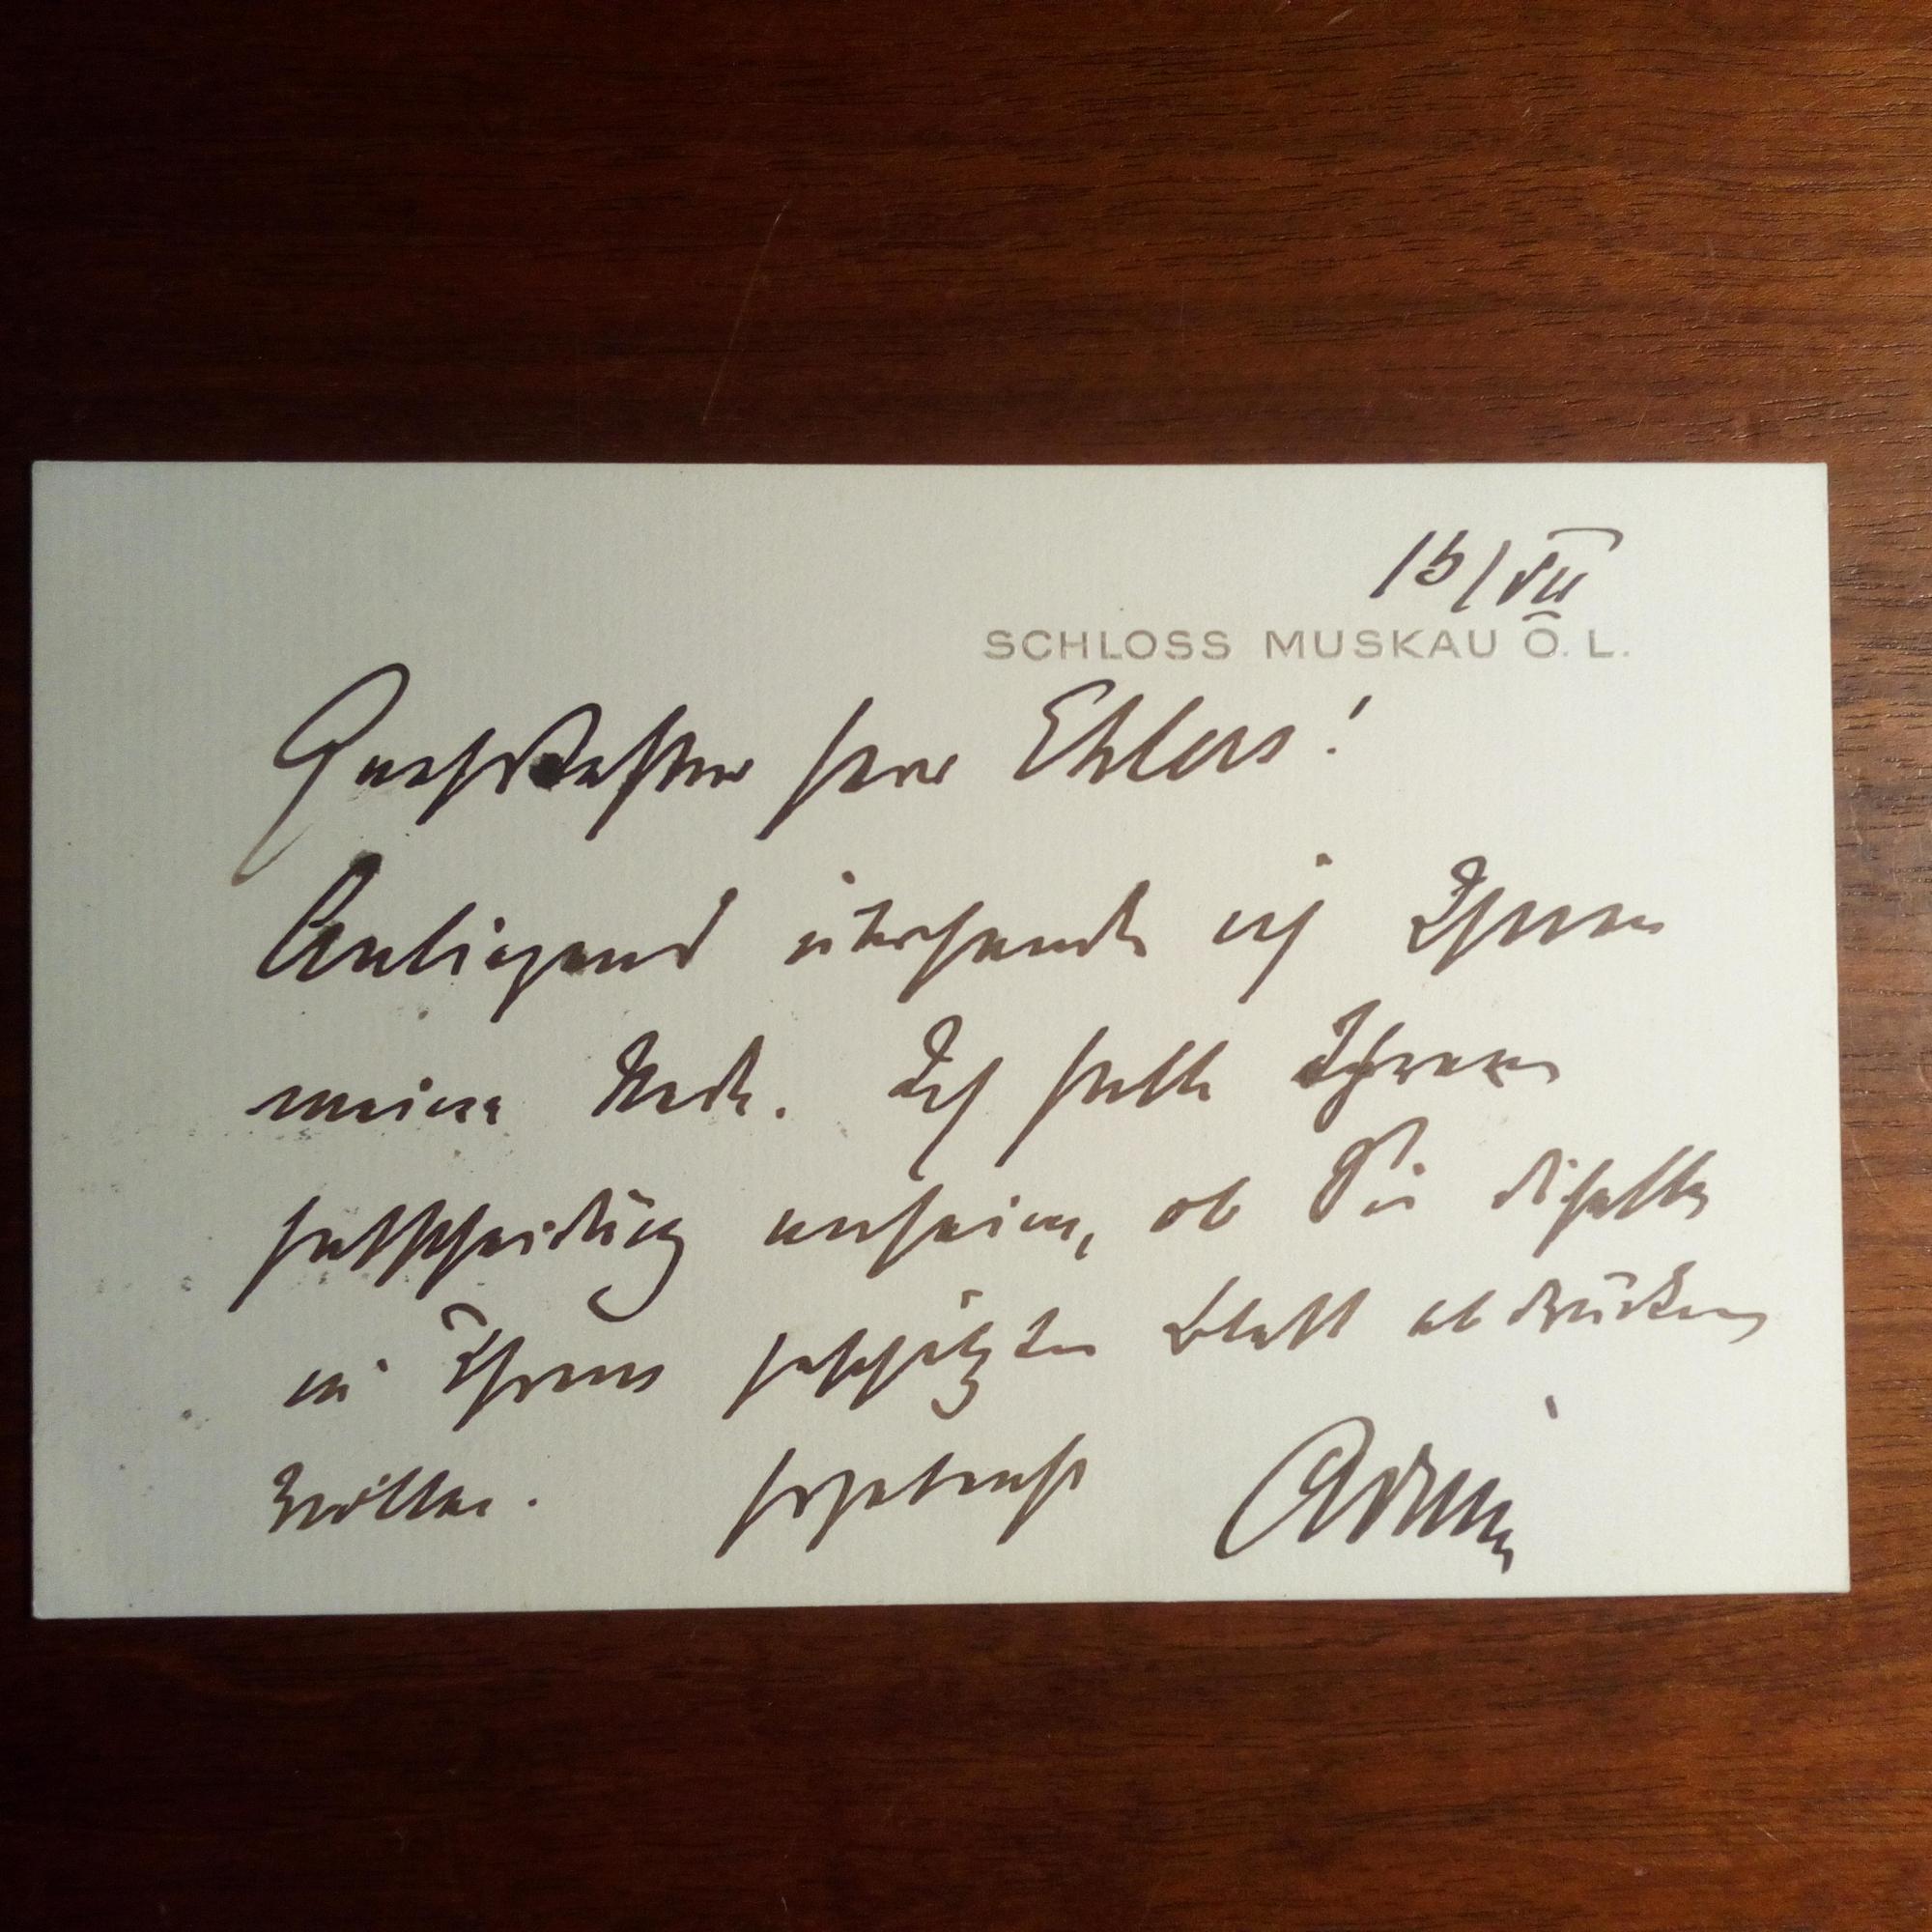 15/VII
SCHLOSS MUSKAU O. L.
Herr Ehlers!
Anliegend übersende ich Ihnen
meine Rede. Ich stelle Ihnen
anheim, ob Sie dieselbe
in Ihrem geschätzten Blatt abdrucken
wollen. ergebenst Arnim